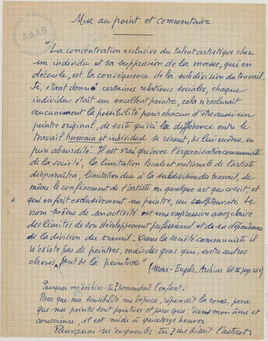 AAAB
Mise au point et commentaire
"La concentration exclusive du talent artistique chez
un individu et sa suppression de la masse, qui en
découle, est la conséquence de la subdivision du travail.
Si, étant donné certaines relations sociales, chaque
individu était un excellent peintre, cela n'exclurait
aucunement la possibilité pour chacun d'être aussi un
peintre original, de sorte qu'ici la différence entre le
travail humain et individuel se résout, de lui-même, en
pure absurdité. Il est vrai qu'avec l'organisation communiste
de la société, la limitation locale et nationale de l'artiste
disparaîtra, limitation due à la subdivision du travail, de
même le confinement de l'artiste en quelque art que ce soit, et
qui en fait exclusivement un peintre, un sculpteur etc. Le
nom même de son activité est une expression assez claire
des limites de son développement professionnel et de sa dépendance
de la division du travail. Dans la société communiste il
n'existe pas de peintres, mais des gens qui, entre autres
choses, font de la peinture"
(Marx-Engels, Archives Vol III page
Pourquoi me
Parce que ma sensibilité me dépasse, répand la zone, parce
que mes pointes sont pointure et parce que dans mon âme et
conscience, il est midi à quatorze heures.
Pourquoi m'engueules-tu? me disait l'asticot.